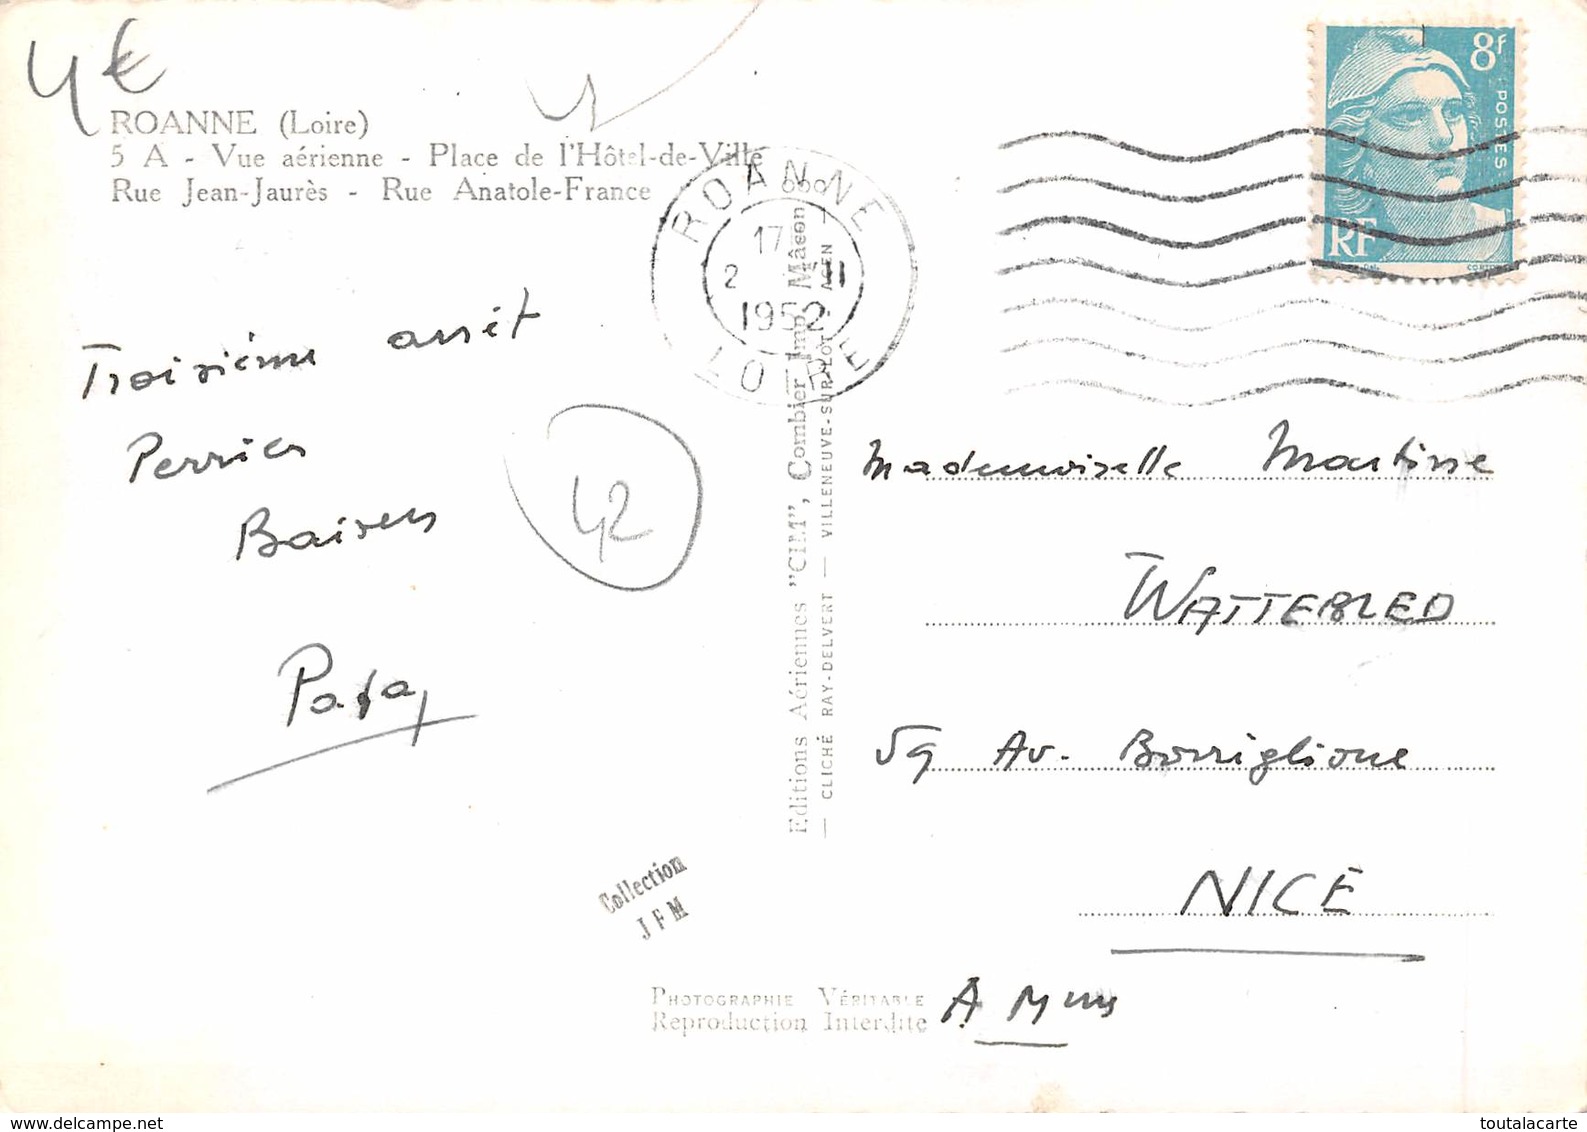 4€
ROANNE (Loire)
5 A - Vue aérienne - Place de l'Hôtel-de-Ville
Rue Jean-Jaurès - Rue Anatole-France
8f
POSTES
RF
ROANNE
17
2 II
1952
LOIRE
Troisième arrêt
Perrier
Baisers
Papa
42
Editions Aériennes "CIM", Combier Imp. Mâcon
— CLICHÉ RAY-DELVERT — VILLENEUVE-SUR-LOT - AGEN —
Mademoiselle Martine
WATTEBLED
59 Av. Borriglione
NICE
A Mmes
Collection
JFM
PHOTOGRAPHIE VÉRITABLE
Reproduction Interdite
toutalacarte